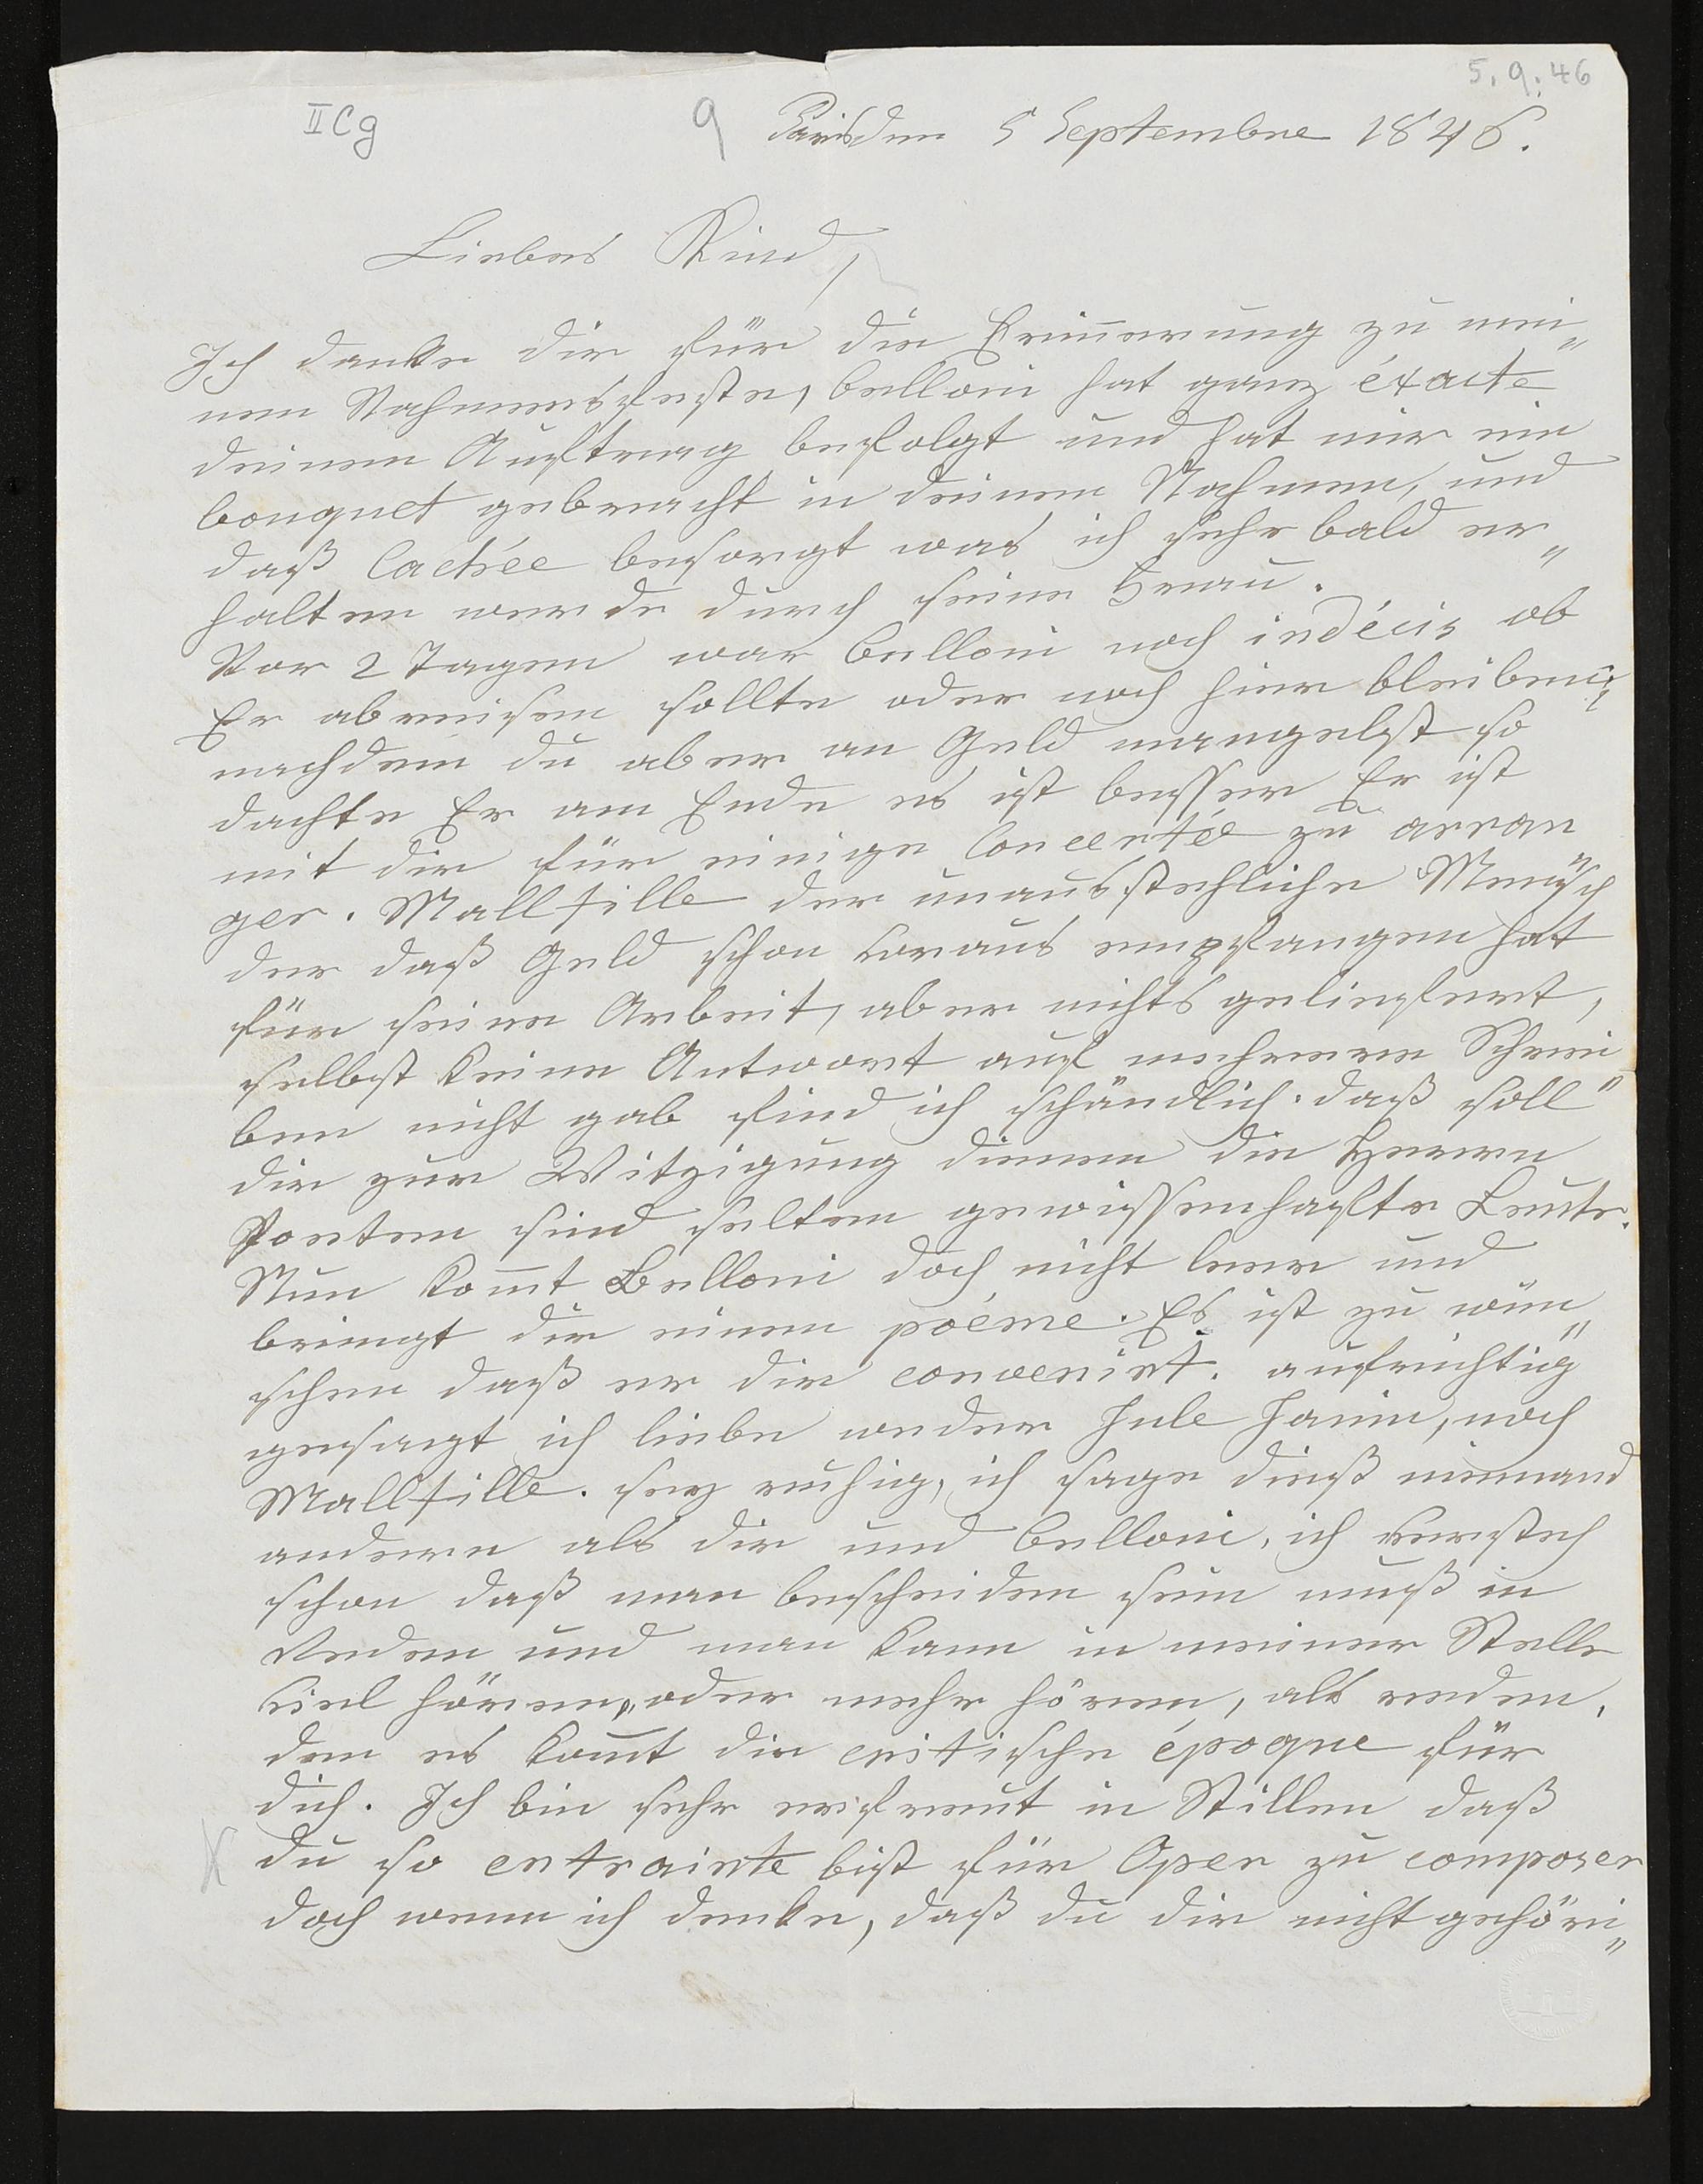 5. 9. 46
II C g
9 Paris den 5 Septembre 1846.
Liebes Kind,
Ich danke dir für die Erinnerung zu mei„
nem Nahmensfeste, belloni hat ganz éxacte
deinem Auftrag befolgt und hat mir ein
bouquet gebracht in deinem Nahmen, und
daß Cachée besorgt was ich sehr bald er„
halten werde durch seine Frau.
Vor 2 Tagen war belloni noch indécis ob
Er abreisen sollte oder noch hier bleiben;
nachdem du aber an Geld mangelst so
dachte Er am Ende es ist besser Er ist
mit dir für einige Concertée zu arran
ger. Mallfille der unausstehliche Mensch
der daß Geld schon voraus empfangen hat
für seine Arbeit, aber nichts geliefert,
selbst keine Antwort auf mehrere Schrei„
ben nicht gab find ich schändlich. daß soll
dir zur Witzigung dienen die Herrn
Poeten sind selten gewissenhafte Leute.
Nun komt Belloni doch nicht leer und
bringt dir einen poéme. Es ist zu wün„
schen daß er dir convenirt. aufrichtig
gesagt ich liebe weder Jule Janin, noch
Mallfille. sey ruhig, ich sage dieß niemand
andern als dir und belloni, ich versteh
schon daß man bescheiden sein muß in
Reden und man kann in meiner Stelle
viel hören, oder mehr hören, als reden,
den es komt die critische époque für
dich. Ich bin sehr erfreut in Stillen daß
du so entrainte bist für Oper zu composer
doch wenn ich denke, daß du dir nicht gehöri„